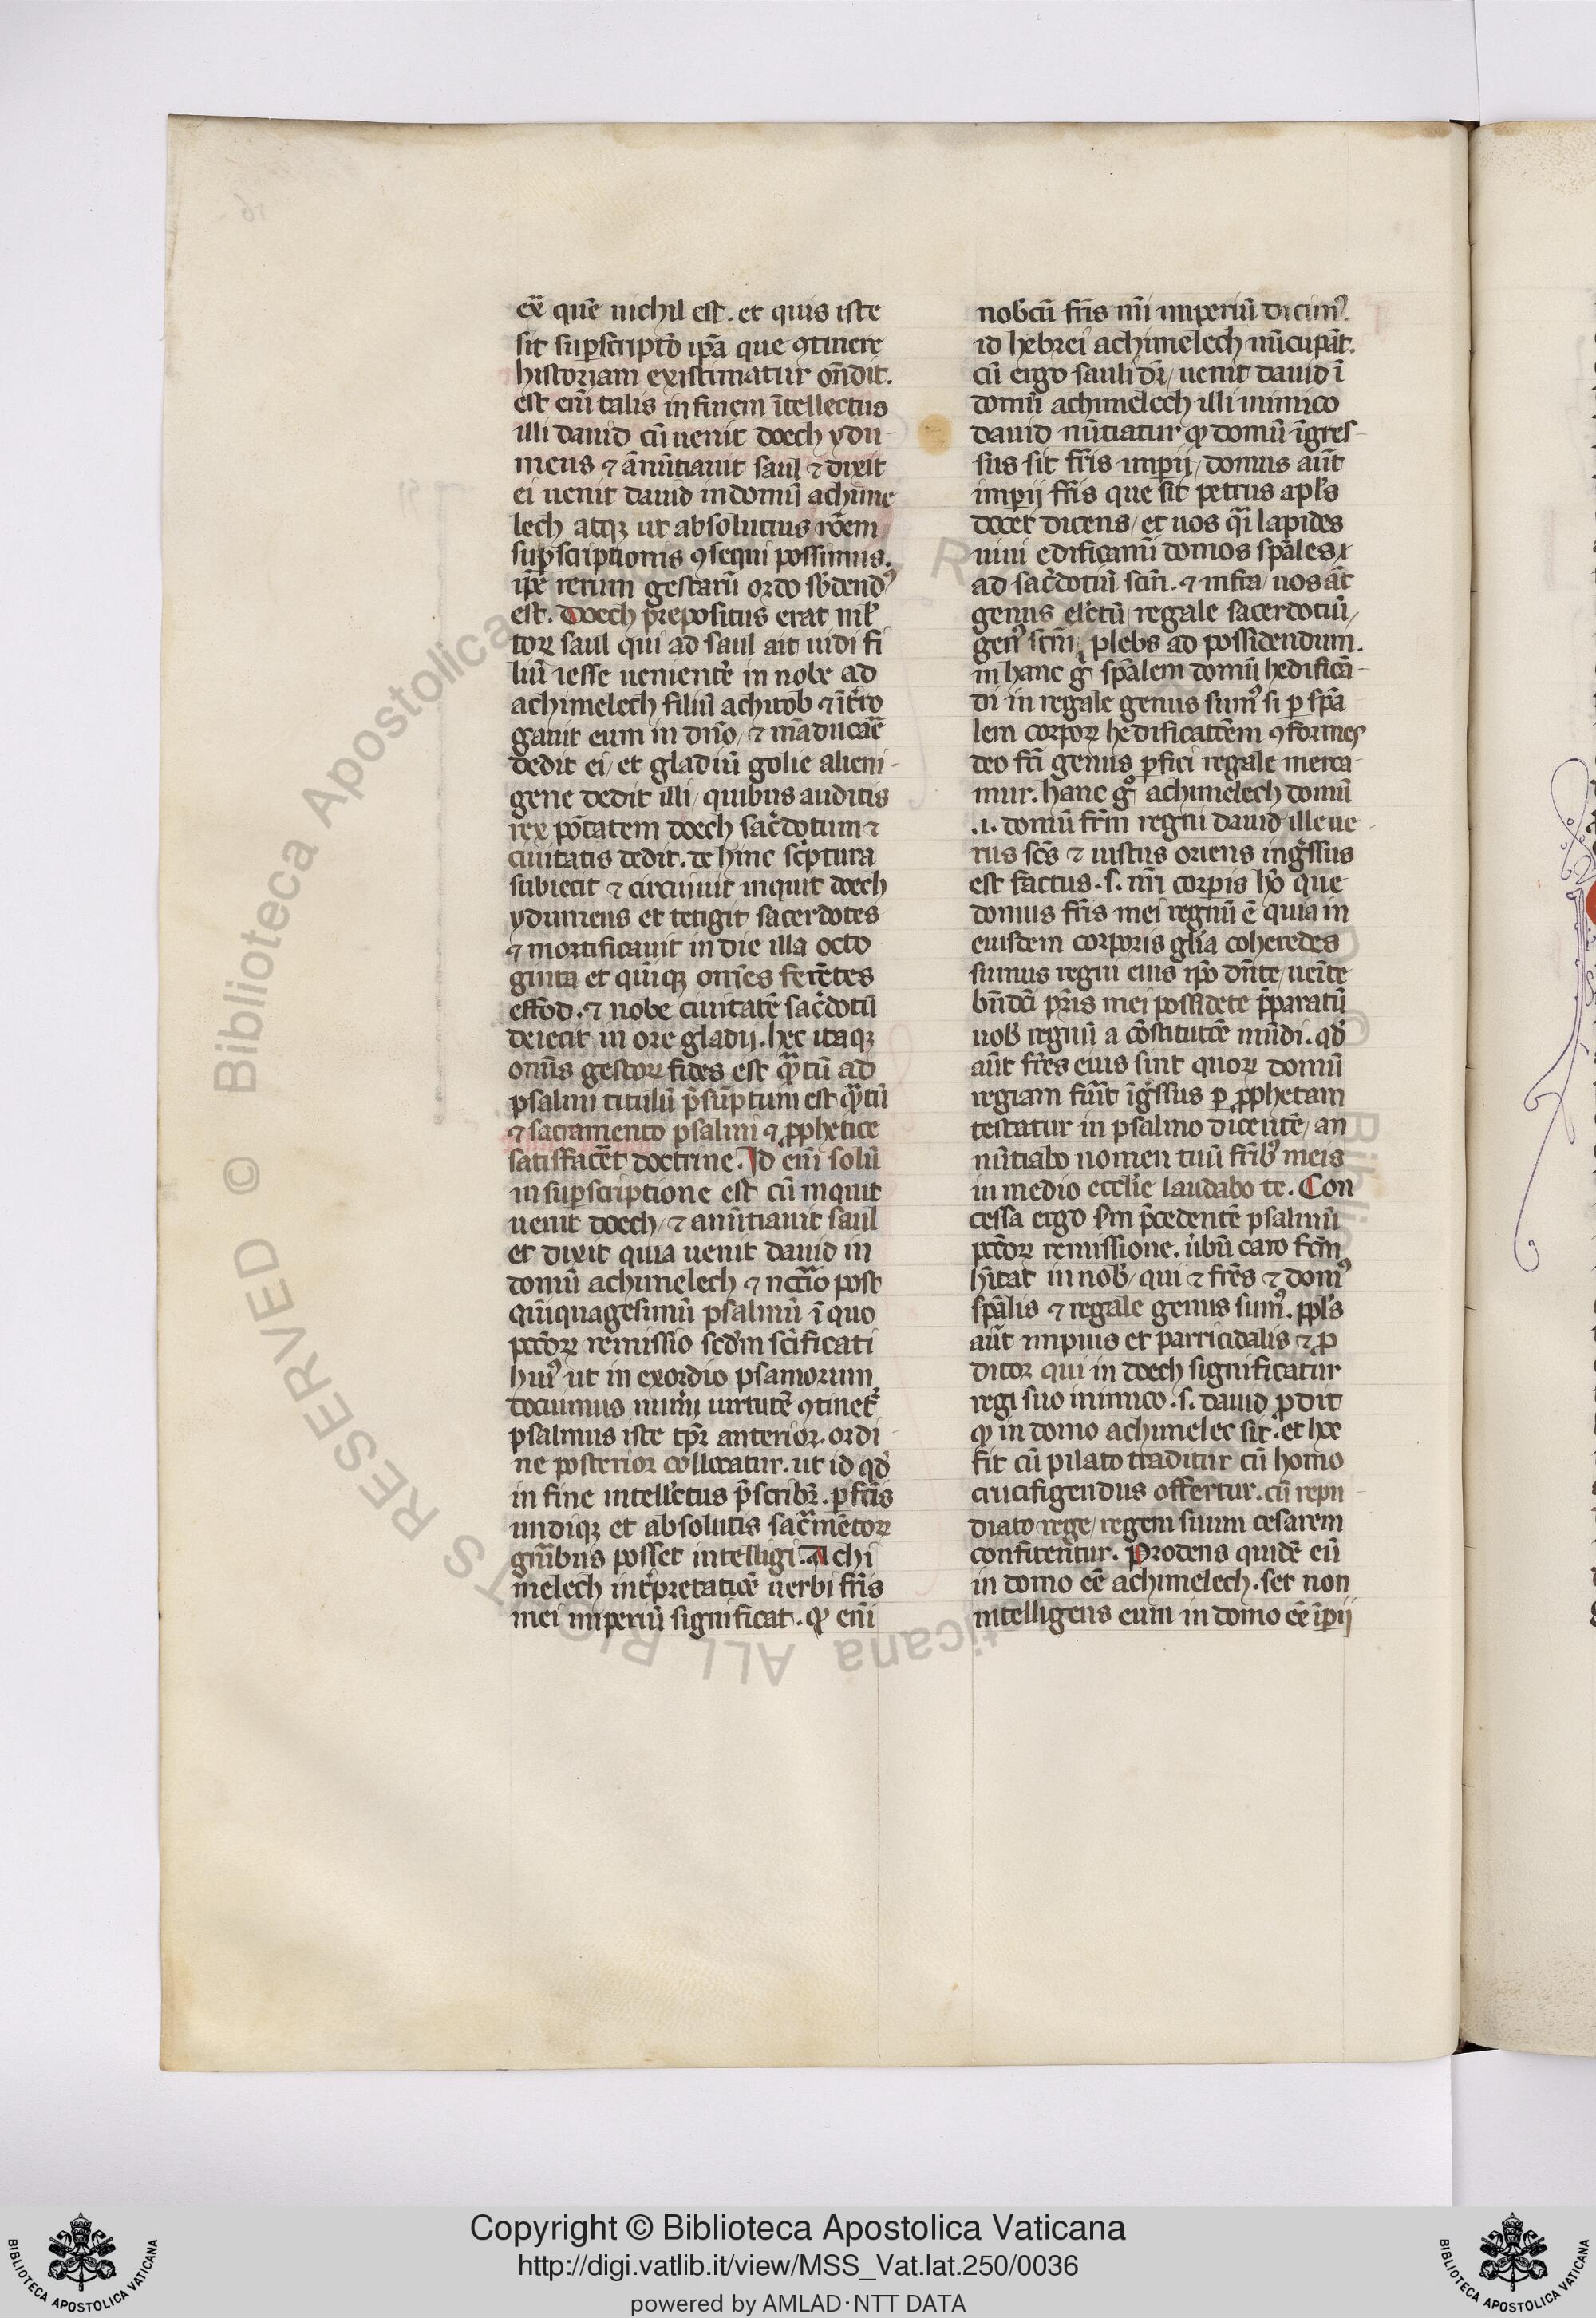 ex̄ quē nichil est. et quis iste
sit suꝑscriptō ip̄a que ꝯtinere
historiam existimatur on̄dit.
est eni᷑ talis in finem ītellectus
illi dauid cū uenit doech ydu
meus ⁊ ānūtiauit saul ⁊ dixit
ei uenit dauid in domū achime
lech atqꝫ ut absolucius rōem
suꝑscriptionis ꝯsequi possimus.
ip̄e rerum gestarū ordo sb̄dendꝰ
est. Doech prepositus erat ml̓
toꝝ saul qui ad saul ait uidi fi
liū iesse uenientē in nobe ad
achimelech filiū achitob ⁊ īt̓ro
gauit eum in dn̄o/ ⁊ māducar̄e
dedit ei/ et gladiū golie alieni-
gene dedit illi/ quibus auditis
rex ptātem doech sac̓dotum ⁊
ciuitatis dedit. de hinc sc̓ptura
subiecit ⁊ circuiuit inquit doech
ydumeus et tetigit sacerdotes
⁊ mortificauit in die illa octo
ginta et quīqꝫ omīes ferētes
effod. ⁊ nobe ciuitatē sac̓dotū
deiecit in ore gladij. hec itaqꝫ
om̄s gestoꝝ fides est qᷓtū ad
psalmi titulū p̄sūptum est qᷓtū
⁊ sacramento psalmi ⁊ ꝓphetice
satisfacēt doctrine. Id eni᷑ solū
in suꝑscriptione est cū inquit
uenit doech/ ⁊ anūtiauit saul
et dixit quia uenit dauid in
domū achimelech ⁊
post
quīquagesimū psalmū ī quo
pctōꝝ remissio scd̓m scīficati
huiꝰ ut in exordio psamorum
docuimus num̓i uirtutē ꝯtinet᷑
psalmus iste tp̄r anterior. ordi
ne posterior collocatur. ut id qd̓
in fine intell̓ctus p̄scribr̄. ꝑfctīs
undiqꝫ et absolutis sacᷓmētoꝝ
gn̄ibus posset intelligi. Achi
melech int̓pretatiōe uerbi fr̄is
mei imperiū significat. ꝙ eni᷑
nob̓cū fr̄is mī imperiū dicimꝰ.
id hebrei achimelech nūcupāt.
cū ergo sauli dr̄/ uenit dauid ī
domū achimelech illi inimico
dauid nūtiatur ꝙ domū īgres-
sus sit fr̄is imꝑij/ domus aūt
imꝑij fr̄is que sit petrus apl̓s
docet dicens/ et uos qᷓi lapides
uiui edificamī domos spāles
ad sac̓dotiū scm̄. ⁊ infra/ uos āt
genus elc̄tū/ regale sacerdotiū/
genꝰ scm̄/ plebs ad possidendum.
in hanc g̊ spālem domū hedificā-
di in regale genus sumꝰ si ꝑ spā
lem corpoꝝ hedificatōem ꝯformes
deo fcī genus ꝑfici regale merea-
mur. hanc g̊ achimelech domū
.i. domū fr̄m regni dauid ille ue-
rus scs̄ ⁊ iustus oriens ing̓ssus
est factus. s. nr̄i corꝑis hō que
domus fr̄is mei regnū ē quia in
eiusdem corporis glīa coheredes
sumus regni eius ip̄o dn̄te/ ueīte
bn̄dcī pr̄is mei possidete p̄paratū
uob̓ regnū a cōstitutōe mūdi. qd̓
aūt fr̄es eius sint quoꝝ domū
regiam fūit īg̓ssus ꝑ ꝓphetam
testatur in psalmo dicentē/ an
nūtiabo nomen tuū fr̄ibꝰ meis
in medio eccl̓ie laudabo te. Con
cessa ergo s̓m p̄cedentē psalmū
pctōꝝ remissione. u̓bū caro fcm̄
hītat in nob̓/ qui ⁊ fr̄es ⁊ domꝰ
spālis ⁊ regale genus sumꝰ. ppl̓s
aūt impius et parricidalis ⁊ ꝓ
ditor qui in doech significatur
regi suo inimico .s. dauid ꝓdit
ꝙ in domo achimelec sit. et hec
fit cū pilato traditur cū homo
crucifigendus offertur. cū repu-
diato rege/ regem suum cesarem
confitentur. Prodens quidē eū
in domo ēe achimelech. set non
intelligens eum in domo ēe īpij
Copyright © Biblioteca Apostolica Vaticana
http://digi.vatlib.it/view/MSS_Vat.lat.250/0036
powered by AMLAD·NTT DATA